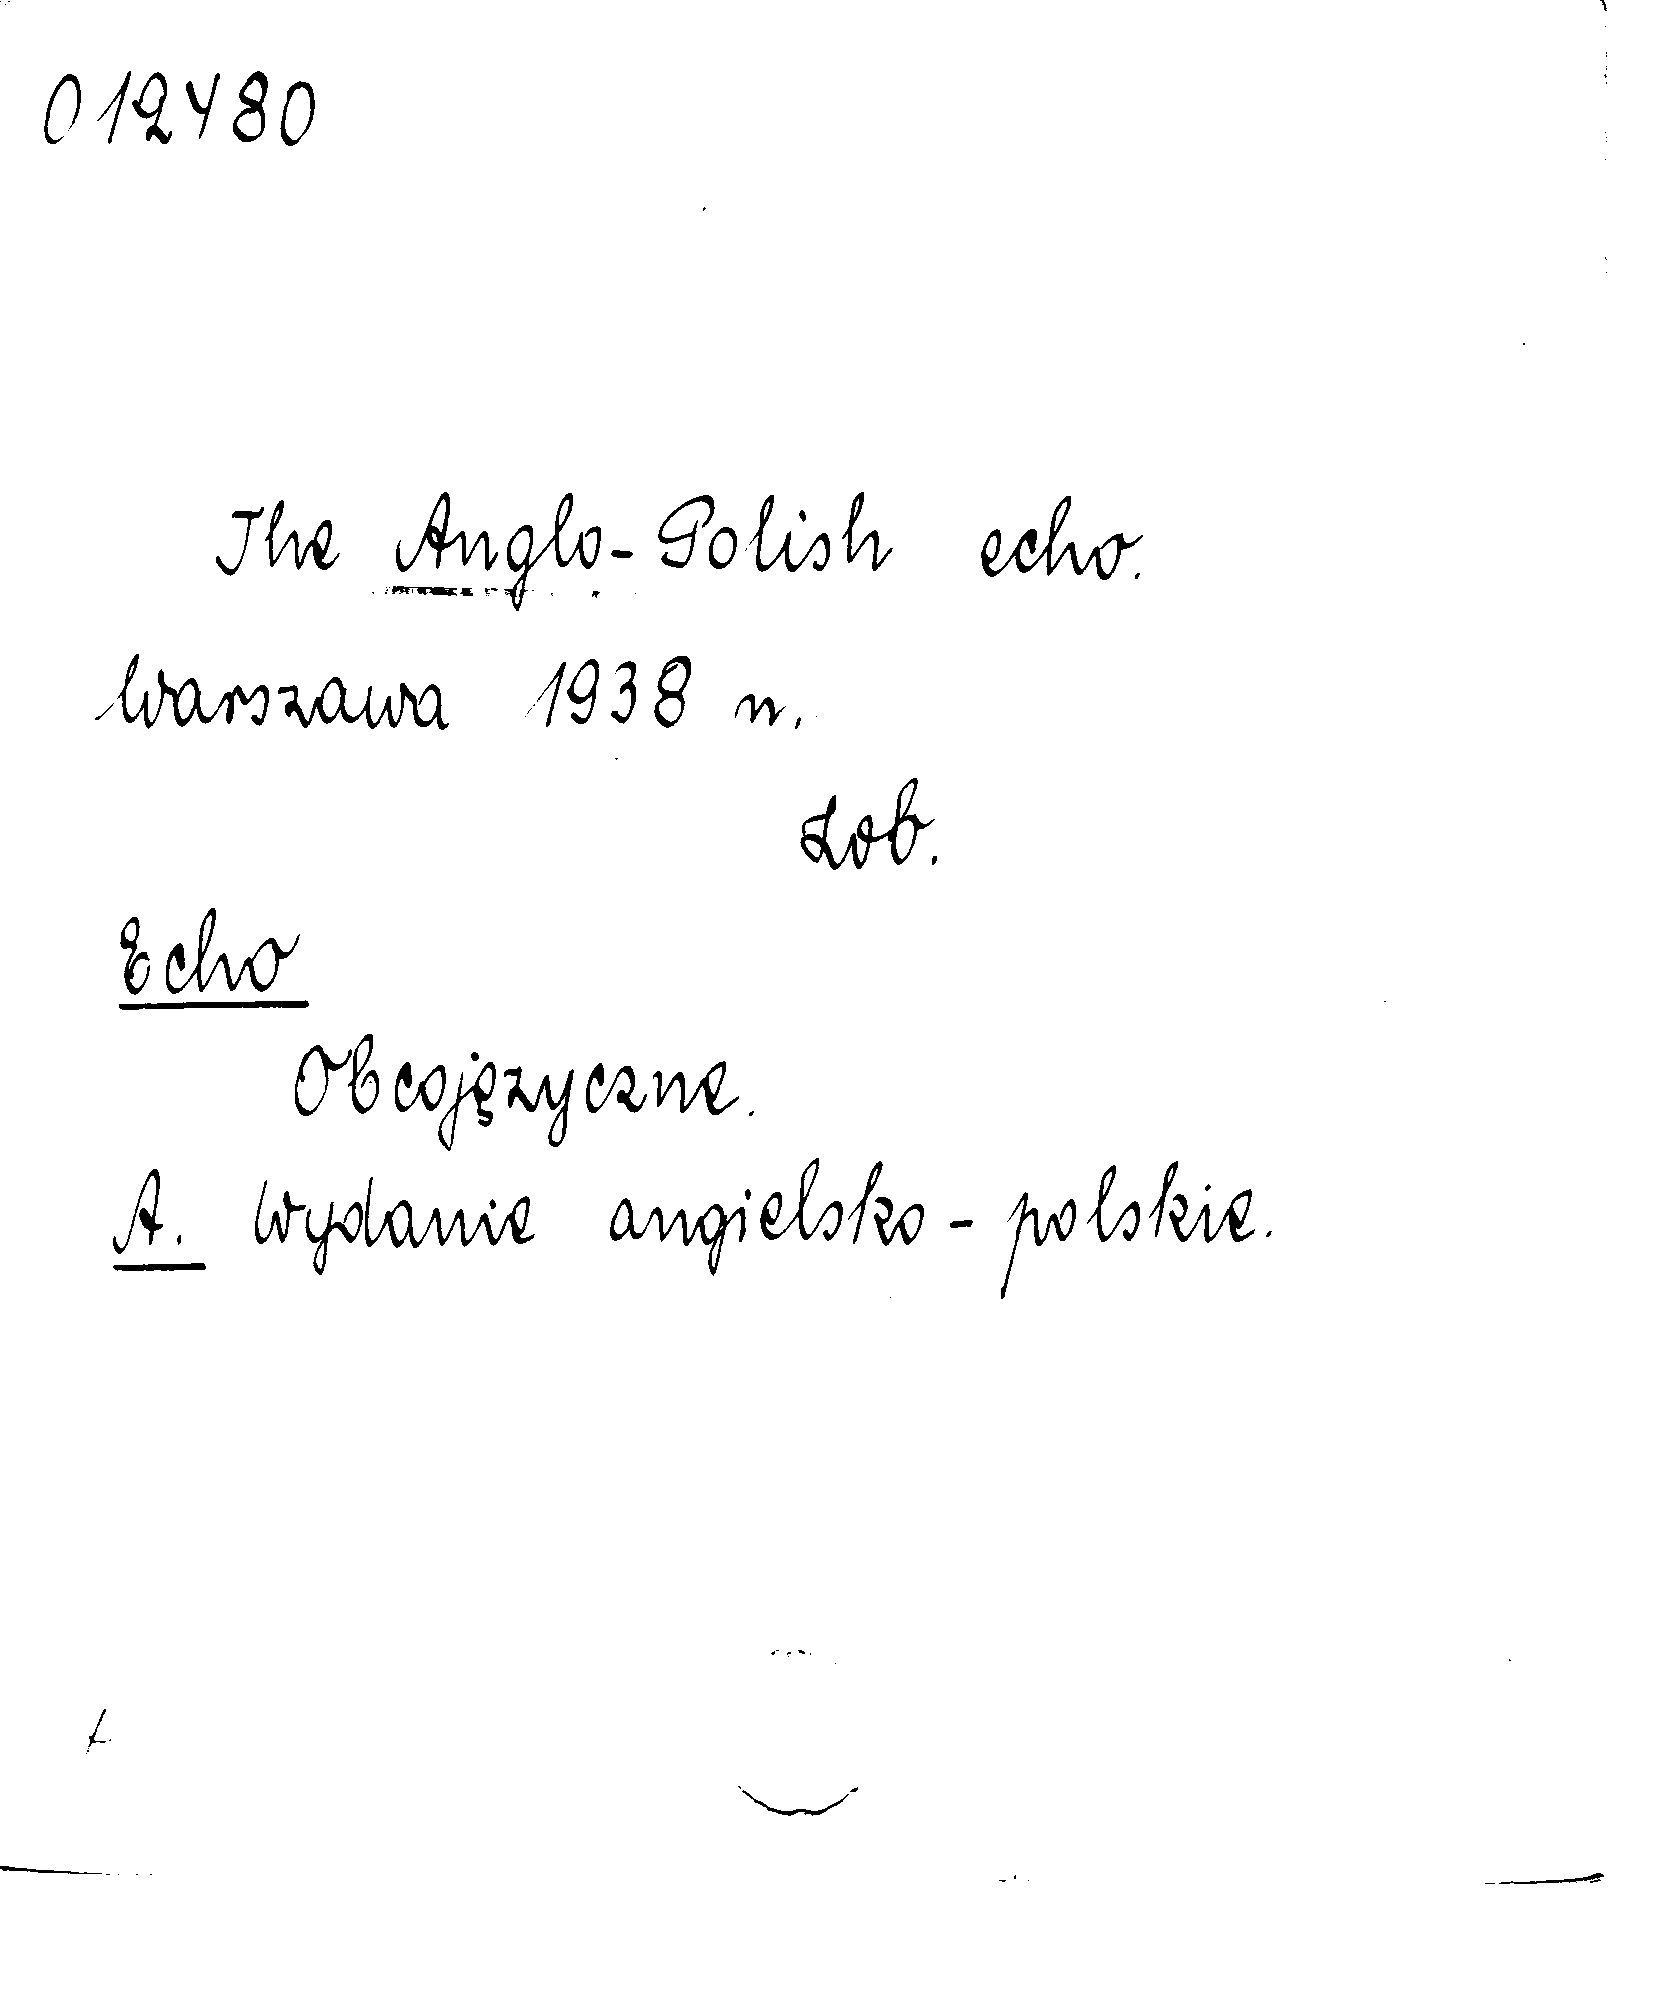 012480
The Anglo-Polish echo.
Warszawa 1938 n.
Zob.
Echo
Obcojęzyczne.
A. Wydanie angielsko-polskie.